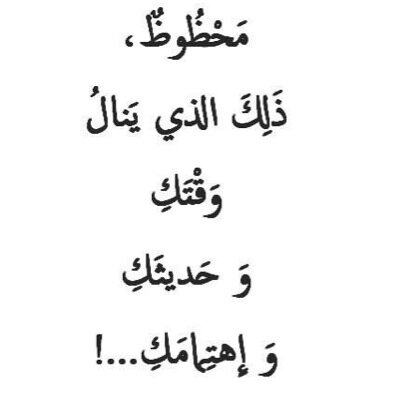 مَحْظُوظٌ،
ذَلِكَ الذي يَنالُ
وَقْتَكِ
وَ حَديثَكِ
وَ إهتِمامَكِ...!